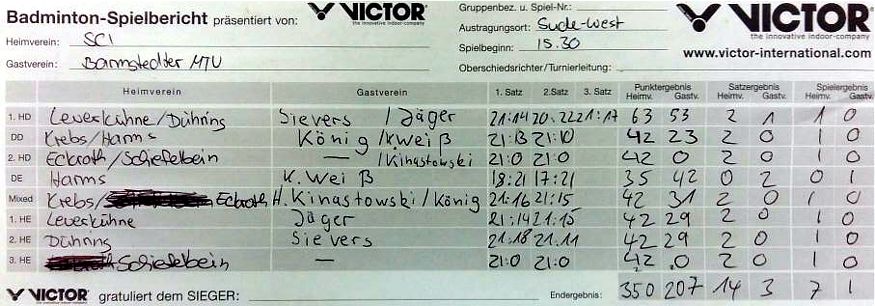 Badminton-Spielbericht präsentiert von: VICTOR the innovative indoor-company
Gruppenbez. u. Spiel-Nr.:
Heimverein: SCI
Austragungsort: Sude-West
VICTOR the innovative indoor-company
Gastverein: Barmstedter MTV
Spielbeginn: 15.30
www.victor-international.com
Oberschiedsrichter/Turnierleitung:
Heimverein Gastverein 1. Satz 2. Satz 3. Satz Punktergebnis Heimv. Gastv. Satzergebnis Heimv. Gastv. Spielergebnis Heimv. Gastv.
1. HD Leverkühne/Dühring Sievers / Jäger 21:14 20:22 21:17 63 53 2 1 1 0
DD Krebs/Harms König / K. Weiß 21:13 21:10 42 23 2 0 1 0
2. HD Eckroth/Schiefelbein — / Kinastowski 21:0 21:0 42 0 2 0 1 0
DE Harms K. Weiß 18:21 17:21 35 42 0 2 0 1
Mixed Krebs/ Eckroth H. Kinastowski / König 21:16 21:15 42 31 2 0 1 0
1. HE Leverkühne Jäger 21:14 21:15 42 29 2 0 1 0
2. HE Dühring Sievers 21:18 21:11 42 29 2 0 1 0
3. HE Schiefelbein — 21:0 21:0 42 0 2 0 1 0
VICTOR gratuliert dem SIEGER: Endergebnis: 350 207 14 3 7 1